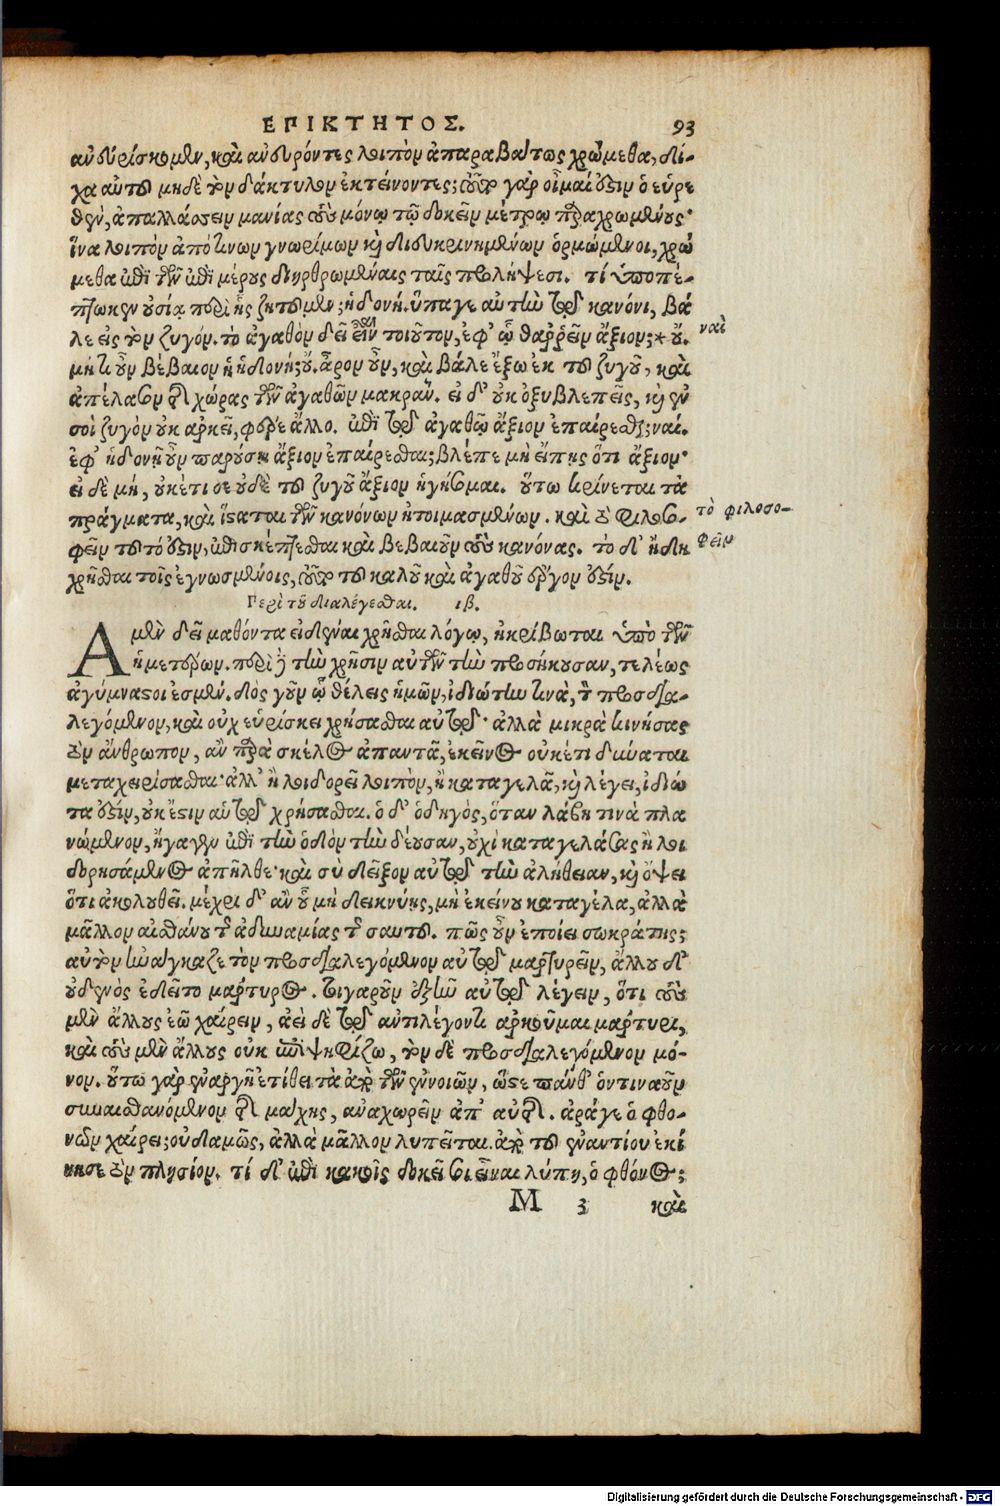 ΕΠΙΚΤΗΤΟΣ. 93
ἀνευρίσκομεν, καὶ ἀνευρόντες λοιπὸν ἀπαραβάτως χρώμεθα, δί-
χα αὐτοῦ μηδὲ τὸν δάκτυλον ἐκτείνοντες; τοῦτο γὰρ οἶμαί ὅστιν ὁ εὑρε
θὲν, ἀπαλλάσσειν μανίας τοὺς μόνῳ τῷ δοκεῖν μέτρῳ παραχρωμένους·
ἵνα λοιπὸν ἀπό τινων γνωρίμων καὶ διευκρινημένων ὁρμώμενοι, χρώ
μεθα ἐπὶ τῶν ἐπὶ μέρους διηρθρωμέναις ταῖς προλήψεσι. τί ὑποπέ-
πτωκεν οὐσία περὶ ἧς ζητοῦμεν; ἡδονή. ὕπαγε αὐτὴν τῷ κανόνι, βά
λε εἰς τὸν ζυγόν. τὸ ἀγαθὸν δεῖ εἶναι τοιοῦτον, ἐφ' ᾧ θαῤῥεῖν ἄξιον; * οὔ.
ναὶ
μή τι οὖν βέβαιον ἡ ἡδονή; οὔ. ἆρον οὖν, καὶ βάλε ἔξω ἐκ τοῦ ζυγοῦ, καὶ
ἀπέλασον τῆς χώρας τῶν ἀγαθῶν μακράν. εἰ δ' οὐκ ὀξυβλεπεῖς, καὶ ἕν
σοὶ ζυγὸν οὐκ ἀρκεῖ, φέρε ἄλλο. ἐπὶ τῷ ἀγαθῷ ἄξιον ἐπαίρεσθαι; ναί.
ἐφ' ἡδονῇ οὖν παρούσῃ ἄξιον ἐπαίρεσθαι; βλέπε μὴ εἴπῃς ὅτι ἄξιον·
εἰ δὲ μή, οὐκέτι σε οὐδὲ τοῦ ζυγοῦ ἄξιον ἡγήσομαι. οὕτω κρίνεται τὰ
πράγματα, καὶ ἵσαται τῶν κανόνων ἡτοιμασμένων. καὶ τὸ φιλοσο-
τὸ φιλοσο-
φεῖν τοῦτό ἐστιν, ἐπισκέπτεσθαι καὶ βεβαιοῦν τοὺς κανόνας. τὸ δ' ἤδη
φεῖν
χρῆσθαι τοῖς ἐγνωσμένοις, τοῦτο τοῦ καλοῦ καὶ ἀγαθοῦ ἔργον ἐστίν.
Περὶ τοῦ διαλέγεσθαι. ιβ.
Α μὲν δεῖ μαθόντα εἰδέναι χρῆσθαι λόγῳ, ἠκρίβωται ὑπὸ τῶν
ἡμετέρων. περὶ δὲ τὴν χρῆσιν αὐτῶν τὴν προσήκουσαν, τελέως
ἀγύμναστοι ἐσμέν. δὸς γοῦν ᾧ θέλεις ἡμῶν, ἰδιώτην τινὰ, τὸν προσδια-
λεγόμενον, καὶ οὐχ εὑρίσκει χρήσασθαι αὐτῷ· ἀλλὰ μικρὰ κινήσας
τὸν ἄνθρωπον, ἂν παρὰ σκέλος ἀπαντᾷ, ἐκεῖνος οὐκέτι δύναται
μεταχειρίσασθαι· ἀλλ' ἢ λοιδορεῖ λοιπὸν, ἢ καταγελᾷ, καὶ λέγει, ἰδιώ
τα ἐστὶν, οὐκ ἔστιν αὐτῷ χρήσασθαι. ὁ δ' ὁδηγὸς, ὅταν λάβῃ τινὰ πλα
νώμενον, ἤγαγεν ἐπὶ τὴν ὁδὸν τὴν δέουσαν, οὐχὶ καταγελάσας ἢ λοι
δορησάμενος ἀπῆλθε· καὶ σὺ δεῖξον αὐτῷ τὴν ἀλήθειαν, καὶ ὄψει
ὅτι ἀκολουθεῖ. μέχρι δ' ἂν οὗ μὴ δεικνύῃς, μὴ ἐκείνου καταγέλα, ἀλλὰ
μᾶλλον αἰσθάνου τῆς ἀδυναμίας τῆς σαυτοῦ. πῶς οὖν ἐποίει σωκράτης;
αὐτὸν ἠνάγκαζε τὸν προσδιαλεγόμενον αὐτῷ μαρτυρεῖν, ἄλλου δ'
οὐδενὸς ἐδεῖτο μάρτυρος. τιγαροῦν ἐξῆν αὐτῷ λέγειν, ὅτι τοὺς
μὲν ἄλλους ἐῶ χαίρειν, ἀεὶ δὲ τῷ ἀντιλέγοντι ἀρκοῦμαι μάρτυρι,
καὶ τοὺς μὲν ἄλλους οὐκ ἐπιψηφίζω, τὸν δὲ προσδιαλεγόμενον μό-
νον. οὕτω γὰρ ἐναργῆ ἐτίθει τὰ ἀπὸ τῶν ἐννοιῶν, ὥστε πάνθ' ὁντιναοῦν
συναισθανόμενον τῆς μάχης, ἀναχωρεῖν ἀπ' αὐτῆς. ἆράγε ὁ φθο-
νῶν χαίρει; οὐδαμῶς, ἀλλὰ μᾶλλον λυπεῖται. ἀπὸ τοῦ ἐναντίου ἐκί
νησε τὸν πλησίον. τί δ' ἐπὶ κακοῖς δοκεῖ σοι εἶναι λύπη, ὁ φθόνος;
M 3 καὶ
Digitalisierung gefördert durch die Deutsche Forschungsgemeinschaft - DFG